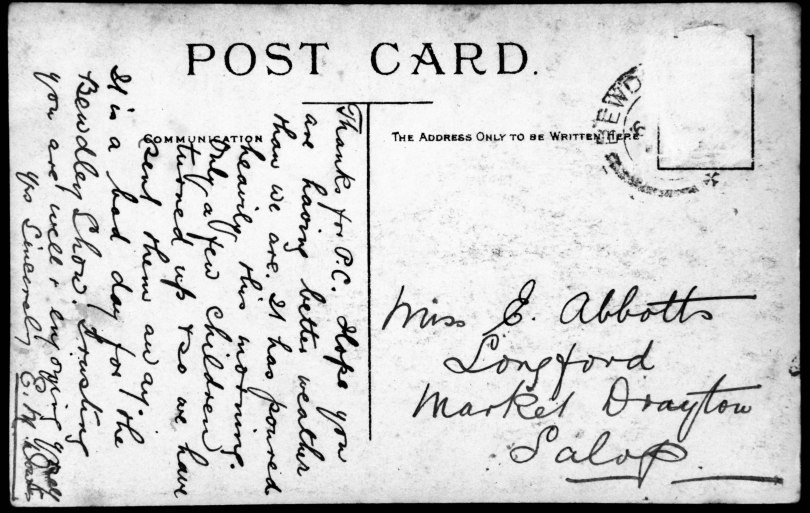 POST CARD.
COMMUNICATION
THE ADDRESS ONLY TO BE WRITTEN HERE
BEWD
Thanks for P.C. Hope you
are having better weather
than we are. It has poured
heavily this morning.
Only a few children
turned up & so we have
sent them away.
It is a bad day for the
Bewdley Show. Trusting
you are well & enjoying
yrs Sincerely
E. M.
Miss E. Abbotts
Longford
Market Drayton
Salop.